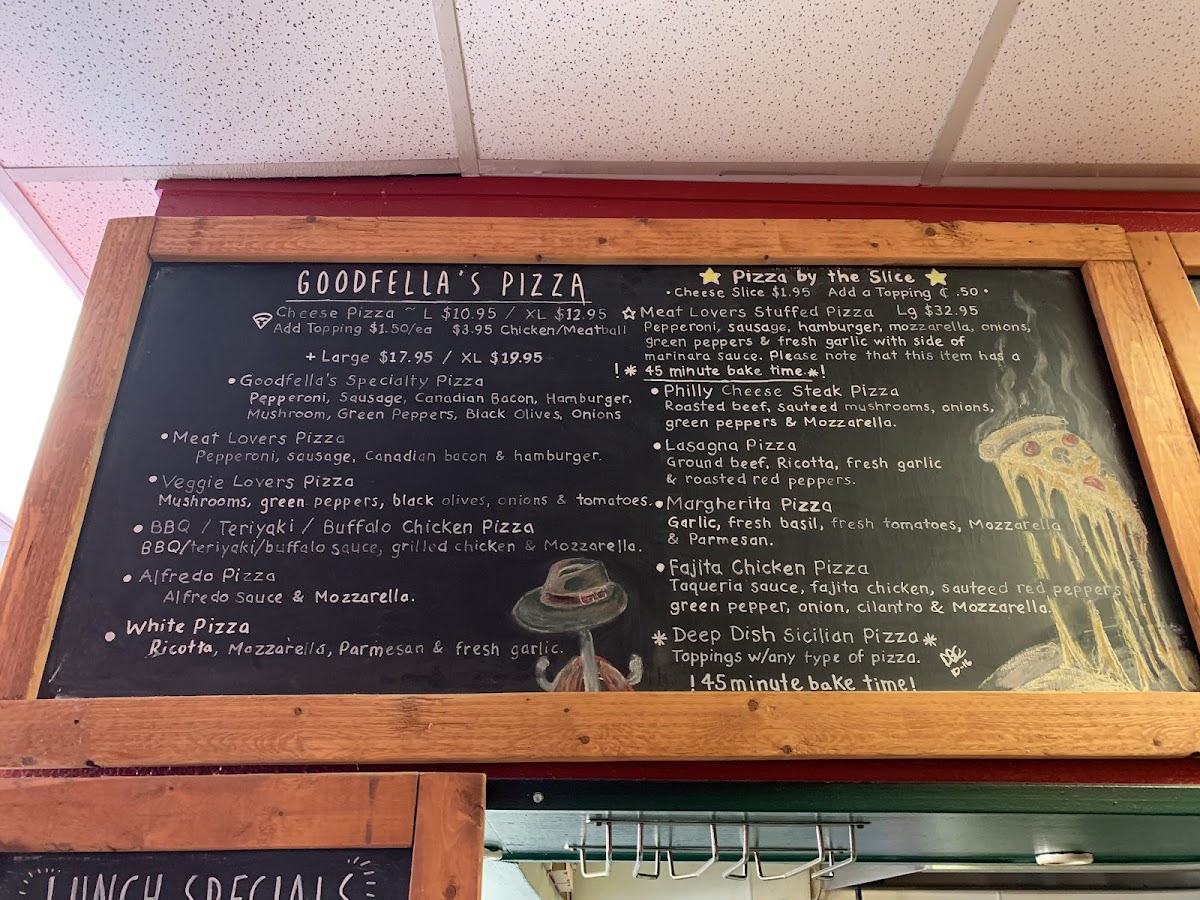 GOODFELLA'S PIZZA
Cheese Pizza ~ L $10.95 / XL $12.95
Add Topping $1.50/ea $3.95 Chicken/Meatball
+ Large $17.95 / XL $19.95
• Goodfella's Specialty Pizza
Pepperoni, Sausage, Canadian Bacon, Hamburger,
Mushroom, Green Peppers, Black Olives, Onions
• Meat Lovers Pizza
Pepperoni, sausage, Canadian bacon & hamburger.
• Veggie Lovers Pizza
Mushrooms, green peppers, black olives, onions & tomatoes.
• BBQ / Teriyaki / Buffalo Chicken Pizza
BBQ/teriyaki/buffalo sauce, grilled chicken & Mozzarella.
• Alfredo Pizza
Alfredo Sauce & Mozzarella.
• White Pizza
Ricotta, Mozzarella, Parmesan & fresh garlic.
Pizza by the Slice
• Cheese Slice $1.95 Add a Topping ¢ .50 •
Meat Lovers Stuffed Pizza Lg $32.95
Pepperoni, sausage, hamburger, mozzarella, onions,
green peppers & fresh garlic with side of
marinara sauce. Please note that this item has a
!* 45 minute bake time *!
• Philly Cheese Steak Pizza
Roasted beef, sauteed mushrooms, onions,
green peppers & Mozzarella.
• Lasagna Pizza
Ground beef, Ricotta, fresh garlic
& roasted red peppers.
• Margherita Pizza
Garlic, fresh basil, fresh tomatoes, Mozzarella
& Parmesan.
• Fajita Chicken Pizza
Taqueria sauce, fajita chicken, sauteed red peppers
green pepper, onion, cilantro & Mozzarella.
* Deep Dish Sicilian Pizza *
Toppings w/any type of pizza.
! 45 minute bake time!
10-16
LUNCH SPECIALS